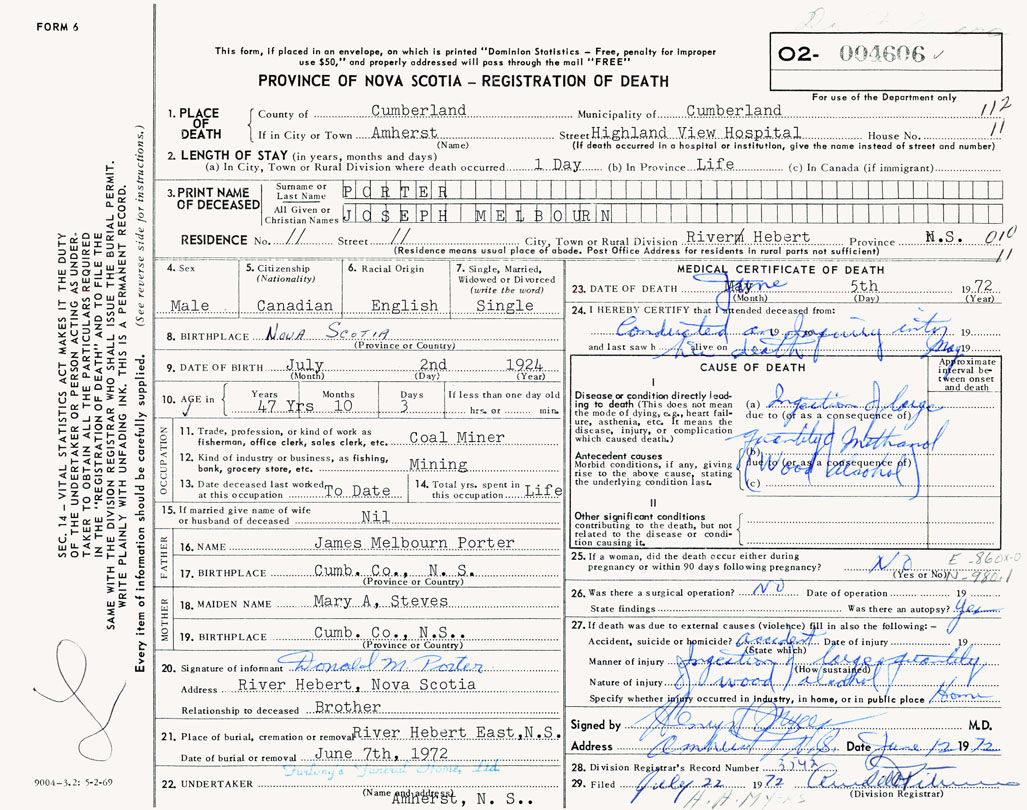 FORM 6
This form, if placed in an envelope, on which is printed "Dominion Statistics – Free, penalty for improper
use $50," and properly addressed will pass through the mail "FREE"
PROVINCE OF NOVA SCOTIA – REGISTRATION OF DEATH
02- 004606
For use of the Department only
SEC. 14 – VITAL STATISTICS ACT MAKES IT THE DUTY
OF THE UNDERTAKER OR PERSON ACTING AS UNDER-
TAKER TO OBTAIN ALL THE PARTICULARS REQUIRED
IN THE "REGISTRATION OF DEATH" AND FILE THE
SAME WITH THE DIVISION REGISTRAR WHO SHALL ISSUE THE BURIAL PERMIT.
WRITE PLAINLY WITH UNFADING INK. THIS IS A PERMANENT RECORD.
Every item of information should be carefully supplied. (See reverse side for instructions.)
1. PLACE OF DEATH County of Cumberland Municipality of Cumberland 112
If in City or Town Amherst Street Highland View Hospital House No. 11
(Name) (If death occurred in a hospital or institution, give the name instead of street and number)
2. LENGTH OF STAY (in years, months and days)
(a) In City, Town or Rural Division where death occurred 1 Day (b) In Province Life (c) In Canada (if immigrant)
3. PRINT NAME OF DECEASED Surname or Last Name PORTER
All Given or Christian Names JOSEPH MELBOURN
RESIDENCE No. // Street // City, Town or Rural Division River Hebert Province N.S. 010
(Residence means usual place of abode. Post Office Address for residents in rural parts not sufficient) 11
4. Sex Male
5. Citizenship (Nationality) Canadian
6. Racial Origin English
7. Single, Married, Widowed or Divorced (write the word) Single
8. BIRTHPLACE NOVA SCOTIA
(Province or Country)
9. DATE OF BIRTH July 2nd 1924
(Month) (Day) (Year)
10. AGE in Years Months Days If less than one day old
47 Yrs 10 3 hrs. or min.
OCCUPATION
11. Trade, profession, or kind of work as
fisherman, office clerk, sales clerk, etc. Coal Miner
12. Kind of industry or business, as fishing,
bank, grocery store, etc. Mining
13. Date deceased last worked at this occupation To Date
14. Total yrs. spent in this occupation Life
15. If married give name of wife
or husband of deceased Nil
FATHER
16. NAME James Melbourn Porter
17. BIRTHPLACE Cumb. Co., N. S.
(Province or Country)
MOTHER
18. MAIDEN NAME Mary A, Steves
19. BIRTHPLACE Cumb. Co., N.S..
(Province or Country)
20. Signature of informant Donald M. Porter
Address River Hebert, Nova Scotia
Relationship to deceased Brother
21. Place of burial, cremation or removal River Hebert East, N.S.
Date of burial or removal June 7th, 1972
Furlong's Funeral Home, Ltd
22. UNDERTAKER
(Name and address)
Amherst, N. S..
9004–3.2: 5-2-69
MEDICAL CERTIFICATE OF DEATH
23. DATE OF DEATH May June 5th 1972
(Month) (Day) (Year)
24. I HEREBY CERTIFY that I attended deceased from:
Conducted an Inquiry into 19 19
and last saw h alive on his death May 19
CAUSE OF DEATH
Approximate interval between onset and death
I
Disease or condition directly lead-
ing to death (This does not mean
the mode of dying, e.g., heart fail-
ure, asthenia, etc. It means the
disease, injury, or complication
which caused death.)
(a) Ingestion of large
due to (or as a consequence of)
quantity of Methanol
Antecedent causes
Morbid conditions, if any, giving
rise to the above cause, stating
the underlying condition last.
(b)
due to (or as a consequence of)
(Wood alcohol)
(c)
II
Other significant conditions
contributing to the death, but not
related to the disease or condi-
tion causing it.
25. If a woman, did the death occur either during
pregnancy or within 90 days following pregnancy? No
(Yes or No)
E-860 N-980.1
26. Was there a surgical operation? NO Date of operation 19
State findings Was there an autopsy? Yes
27. If death was due to external causes (violence) fill in also the following: –
Accident, suicide or homicide? accident Date of injury 19
(State which)
Manner of injury Ingestion of large quantity
(How sustained)
Nature of injury of wood alcohol
Specify whether injury occurred in industry, in home, or in public place Home
Signed by M.D.
Address Amherst N.S. Date June 12 1972
28. Division Registrar's Record Number 3342
29. Filed July 22 1972
(Division Registrar)